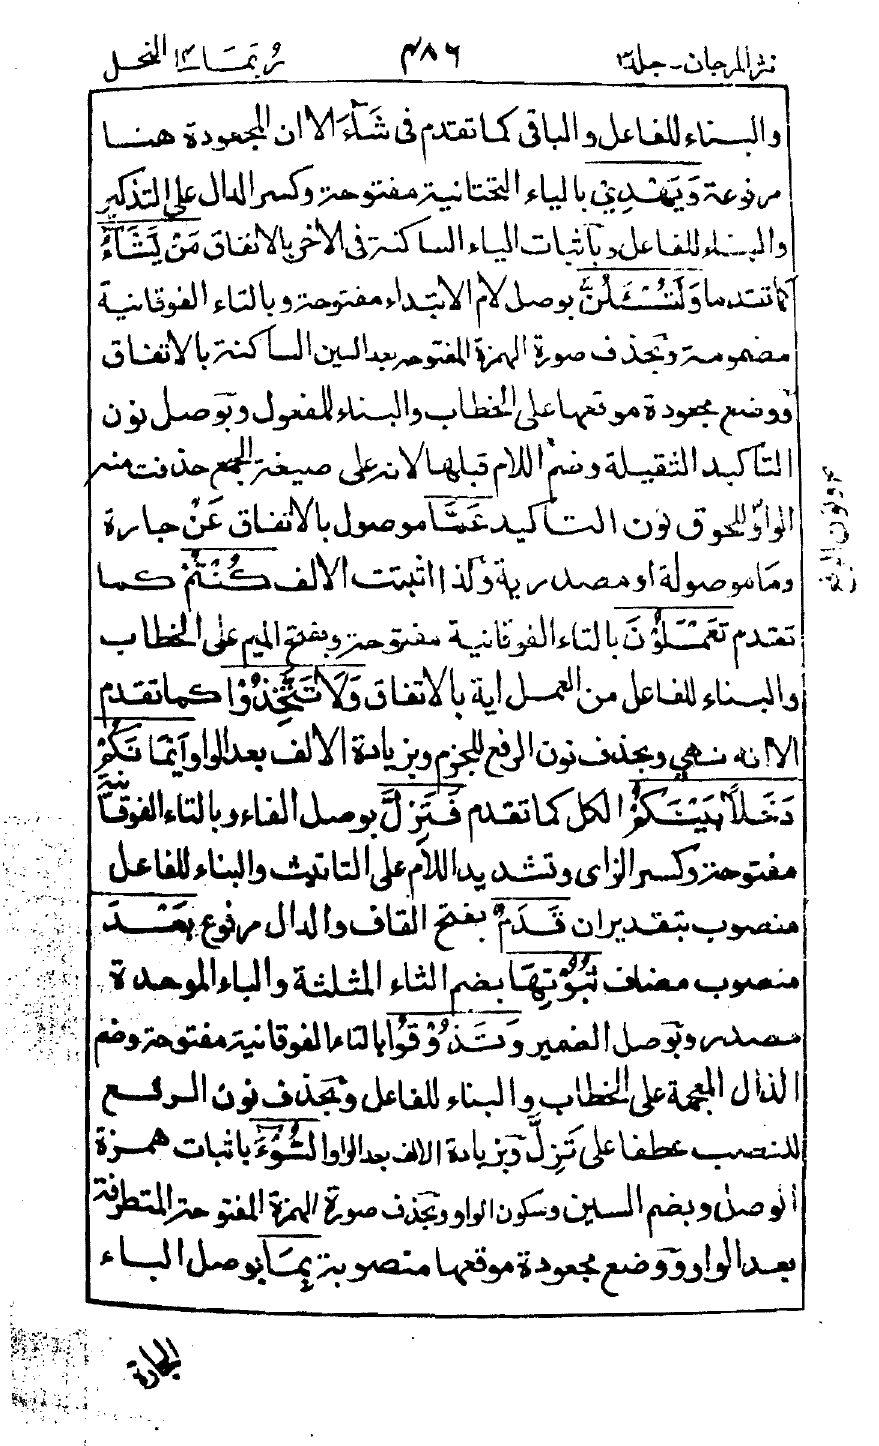 نثر المرجان - جلد ٣
٤٨٦
ربما ١٤ النحل
والبناء للفاعل والباقى كما تقدم فى شَآءَ الا ان المجعودة هنا
مرفوعة وَيَهْدِىْ بالياء التحتانية مفتوحة وكسر الدال على التذكير
والبناء للفاعل وباثبات الياء الساكنة فى الاخر بالاتفاق مَنْ يَشَآءُ
كما تقدما وَلَتُسْـَٔلُنَّ بوصل لام الابتداء مفتوحة وبالتاء الفوقانية
مضمومة وبحذف صورة الهمزة المفتوحة بعد السين الساكنة بالاتفاق
ووضع مجعودة موقعها على الخطاب والبناء للمفعول وبوصل نون
التاكيد الثقيلة وضم اللام قبلها لانه على صيغة الجمع حذفت منه
الواو للحوق نون التاكيد عَمَّا موصول بالاتفاق عَنْ جارة
وما موصولة او مصدرية وكذا اثبتت الالف كُنْتُمْ كما
تقدم تَعْمَلُوْنَ بالتاء الفوقانية مفتوحة وبفتح الميم على الخطاب
والبناء للفاعل من العمل اية بالاتفاق وَلَا تَتَّخِذُوْا كما تقدم
الا انه نهى وبحذف نون الرفع للجزم وبزيادة الالف بعد الواو اَيْمَانَكُمْ
دَخَلًا بَيْنَكُمْ الكل كما تقدم فَتَزِلَّ بوصل الفاء وبالتاء الفوقانية
مفتوحة وكسر الزاى وتشديد اللام على التانيث والبناء للفاعل
منصوب بتقدير ان قَدَمٌ بفتح القاف والدال مرفوع بَعْدَ
منصوب مضاف ثُبُوْتِهَا بضم الثاء المثلثة والباء الموحدة
مصدر وبوصل الضمير وَتَذُوْقُوا بالتاء الفوقانية مفتوحة وضم
الذال المعجمة على الخطاب والبناء للفاعل وبحذف نون الرفع
للنصب عطفا على تَزِلَّ وبزيادة الالف بعد الواو السُّوْٓءَ باثبات همزة
الوصل وبضم السين وسكون الواو وبحذف صورة الهمزة المفتوحة المتطرفة
بعد الواو ووضع مجعودة موقعها منصوبة بِمَا بوصل الباء
الجارة